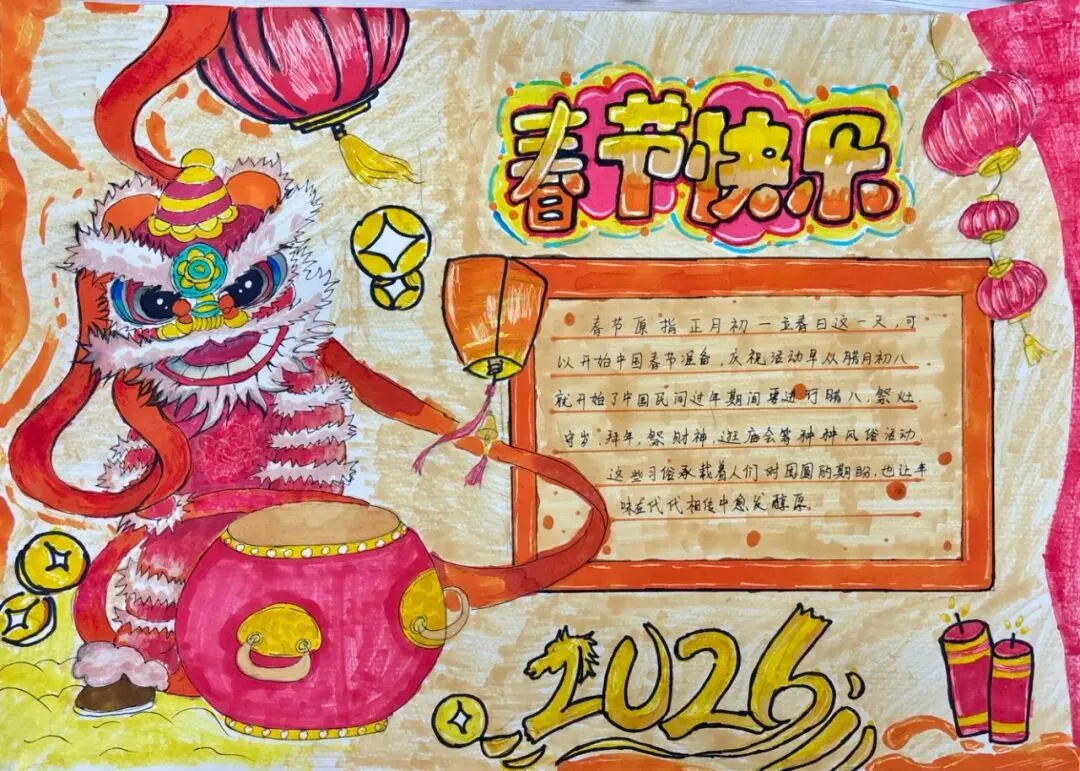 春节快乐
春节原指正月初一立春日这一天,可
以开始中国春节准备,庆祝活动早从腊月初八
就开始了中国民间过年期间要进行腊八,祭灶
守岁,拜年,祭财神,逛庙会等种种风俗活动
这些习俗承载着人们对团圆的期盼,也让年
味在代代相传中愈发醇厚.
2026